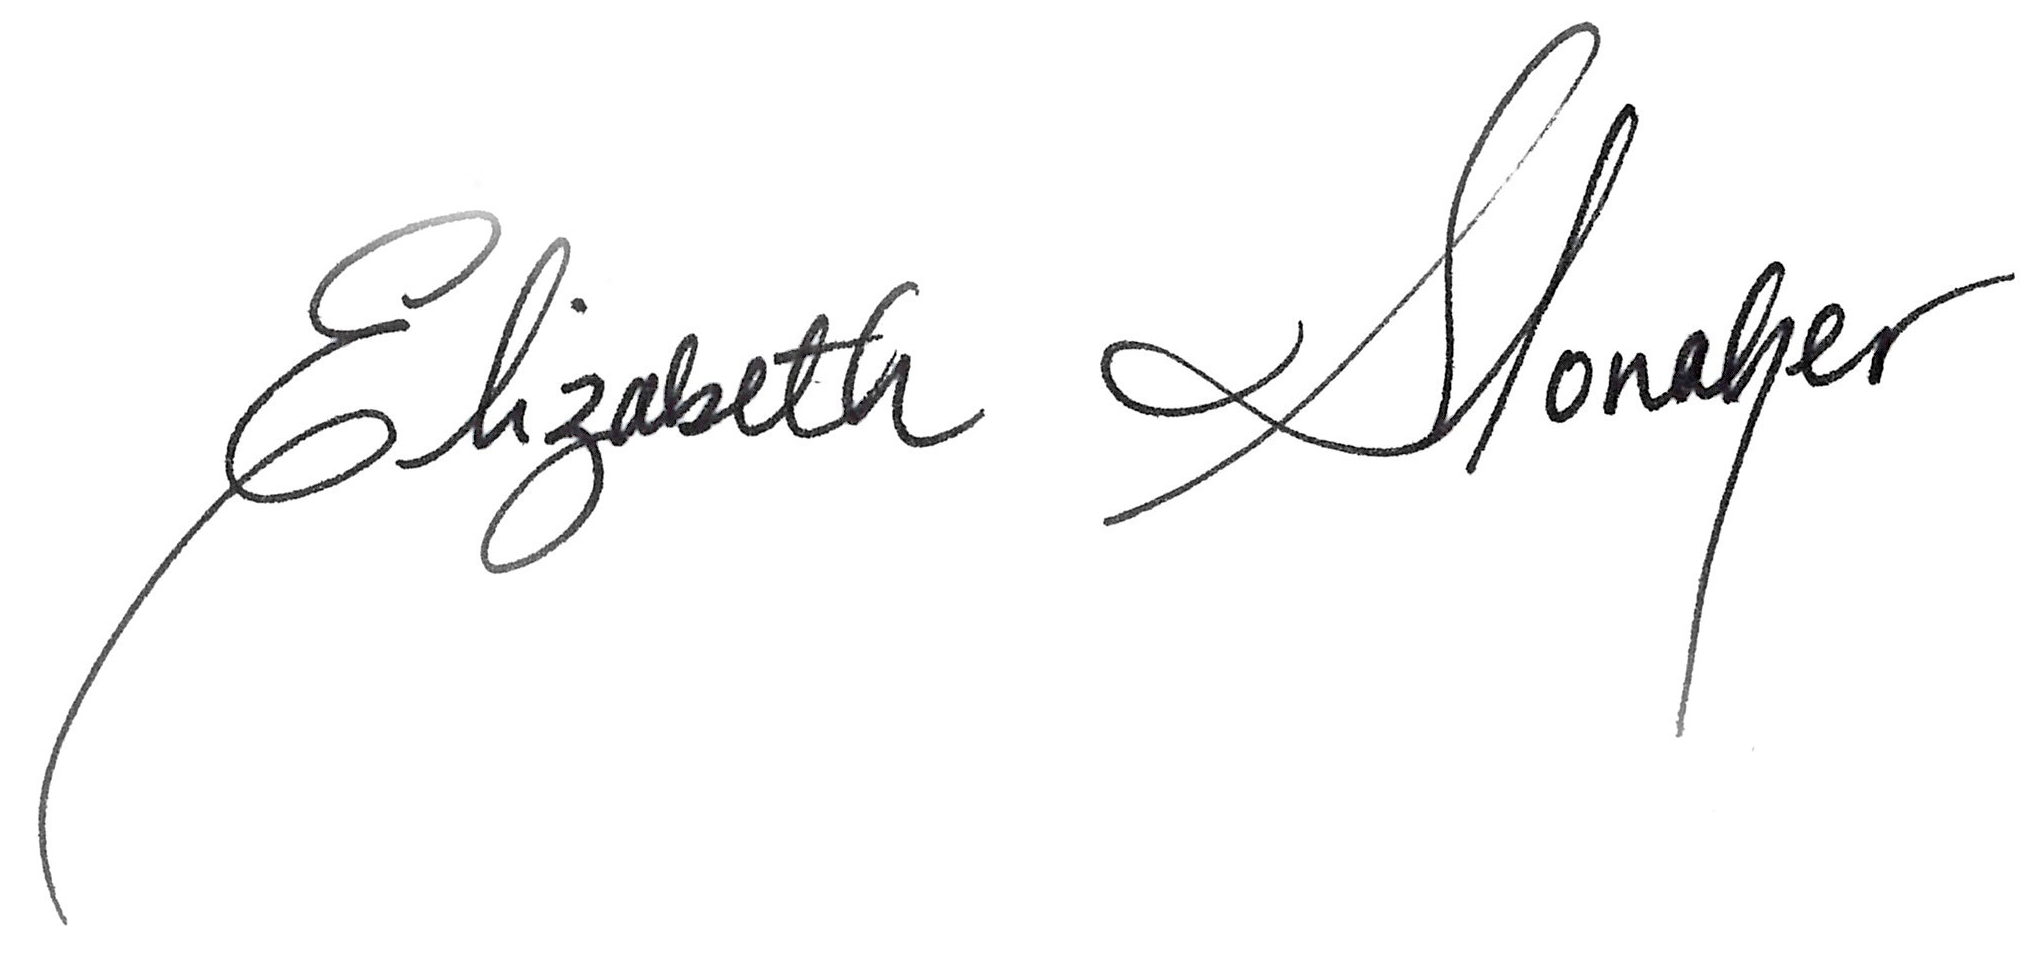 Elizabeth Slonaker